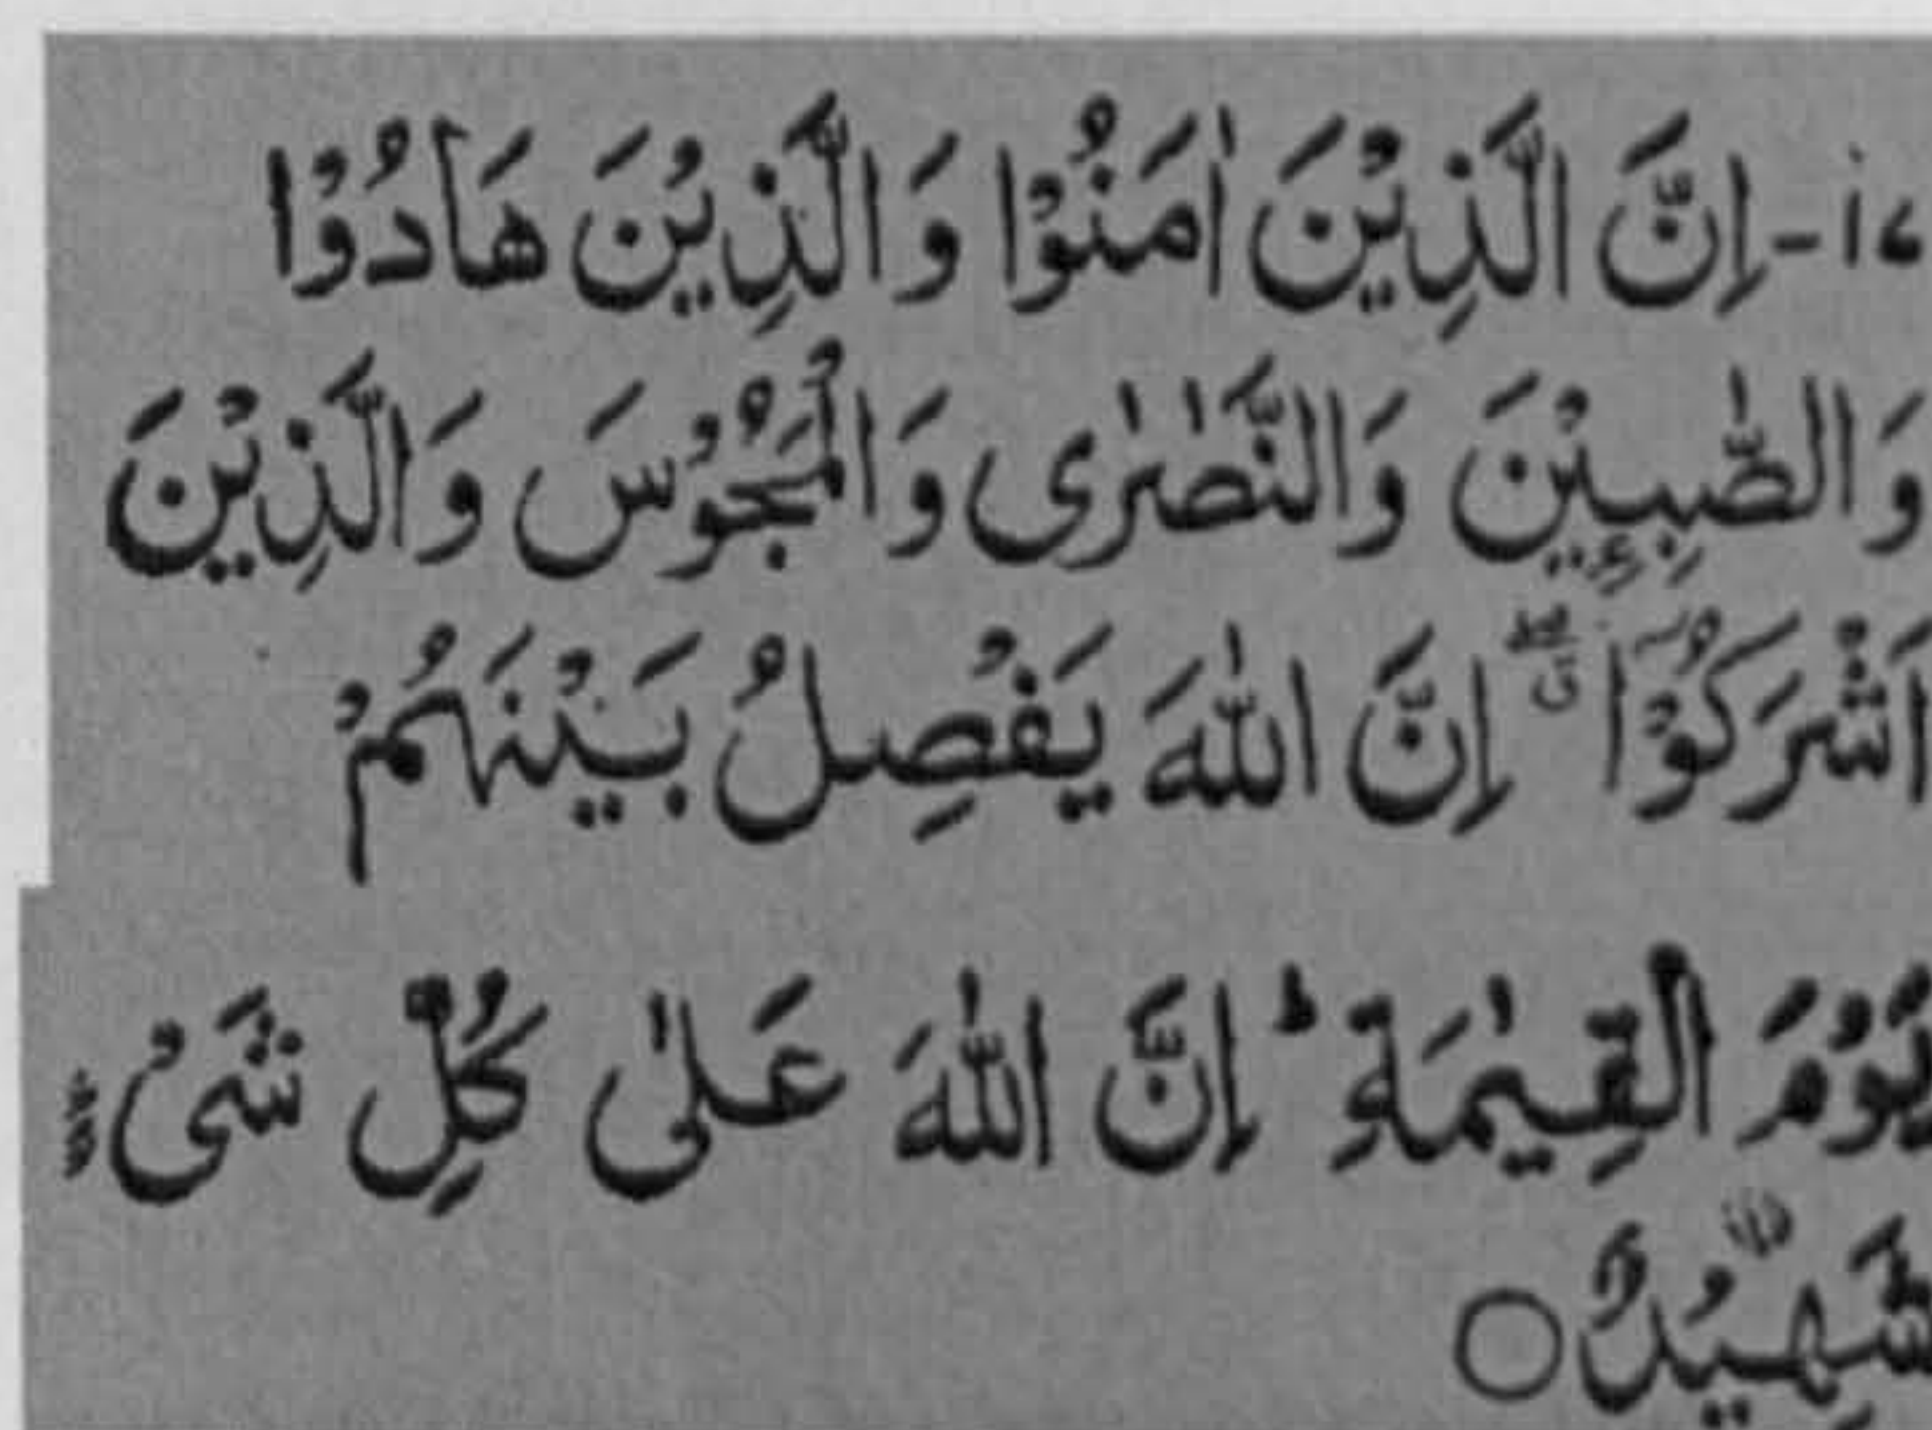 ۱۷- اِنَّ الَّذِيْنَ اٰمَنُوْا وَالَّذِيْنَ هَادُوْا
وَالصّٰبِـِٕيْنَ وَالنَّصٰرٰى وَالْمَجُوْسَ وَالَّذِيْنَ
اَشْرَكُوْۤا ۖۗ اِنَّ اللّٰهَ يَفْصِلُ بَيْنَهُمْ
يَوْمَ الْقِيٰمَةِ ؕ اِنَّ اللّٰهَ عَلٰى كُلِّ شَىْءٍ
شَهِيْدٌ ○